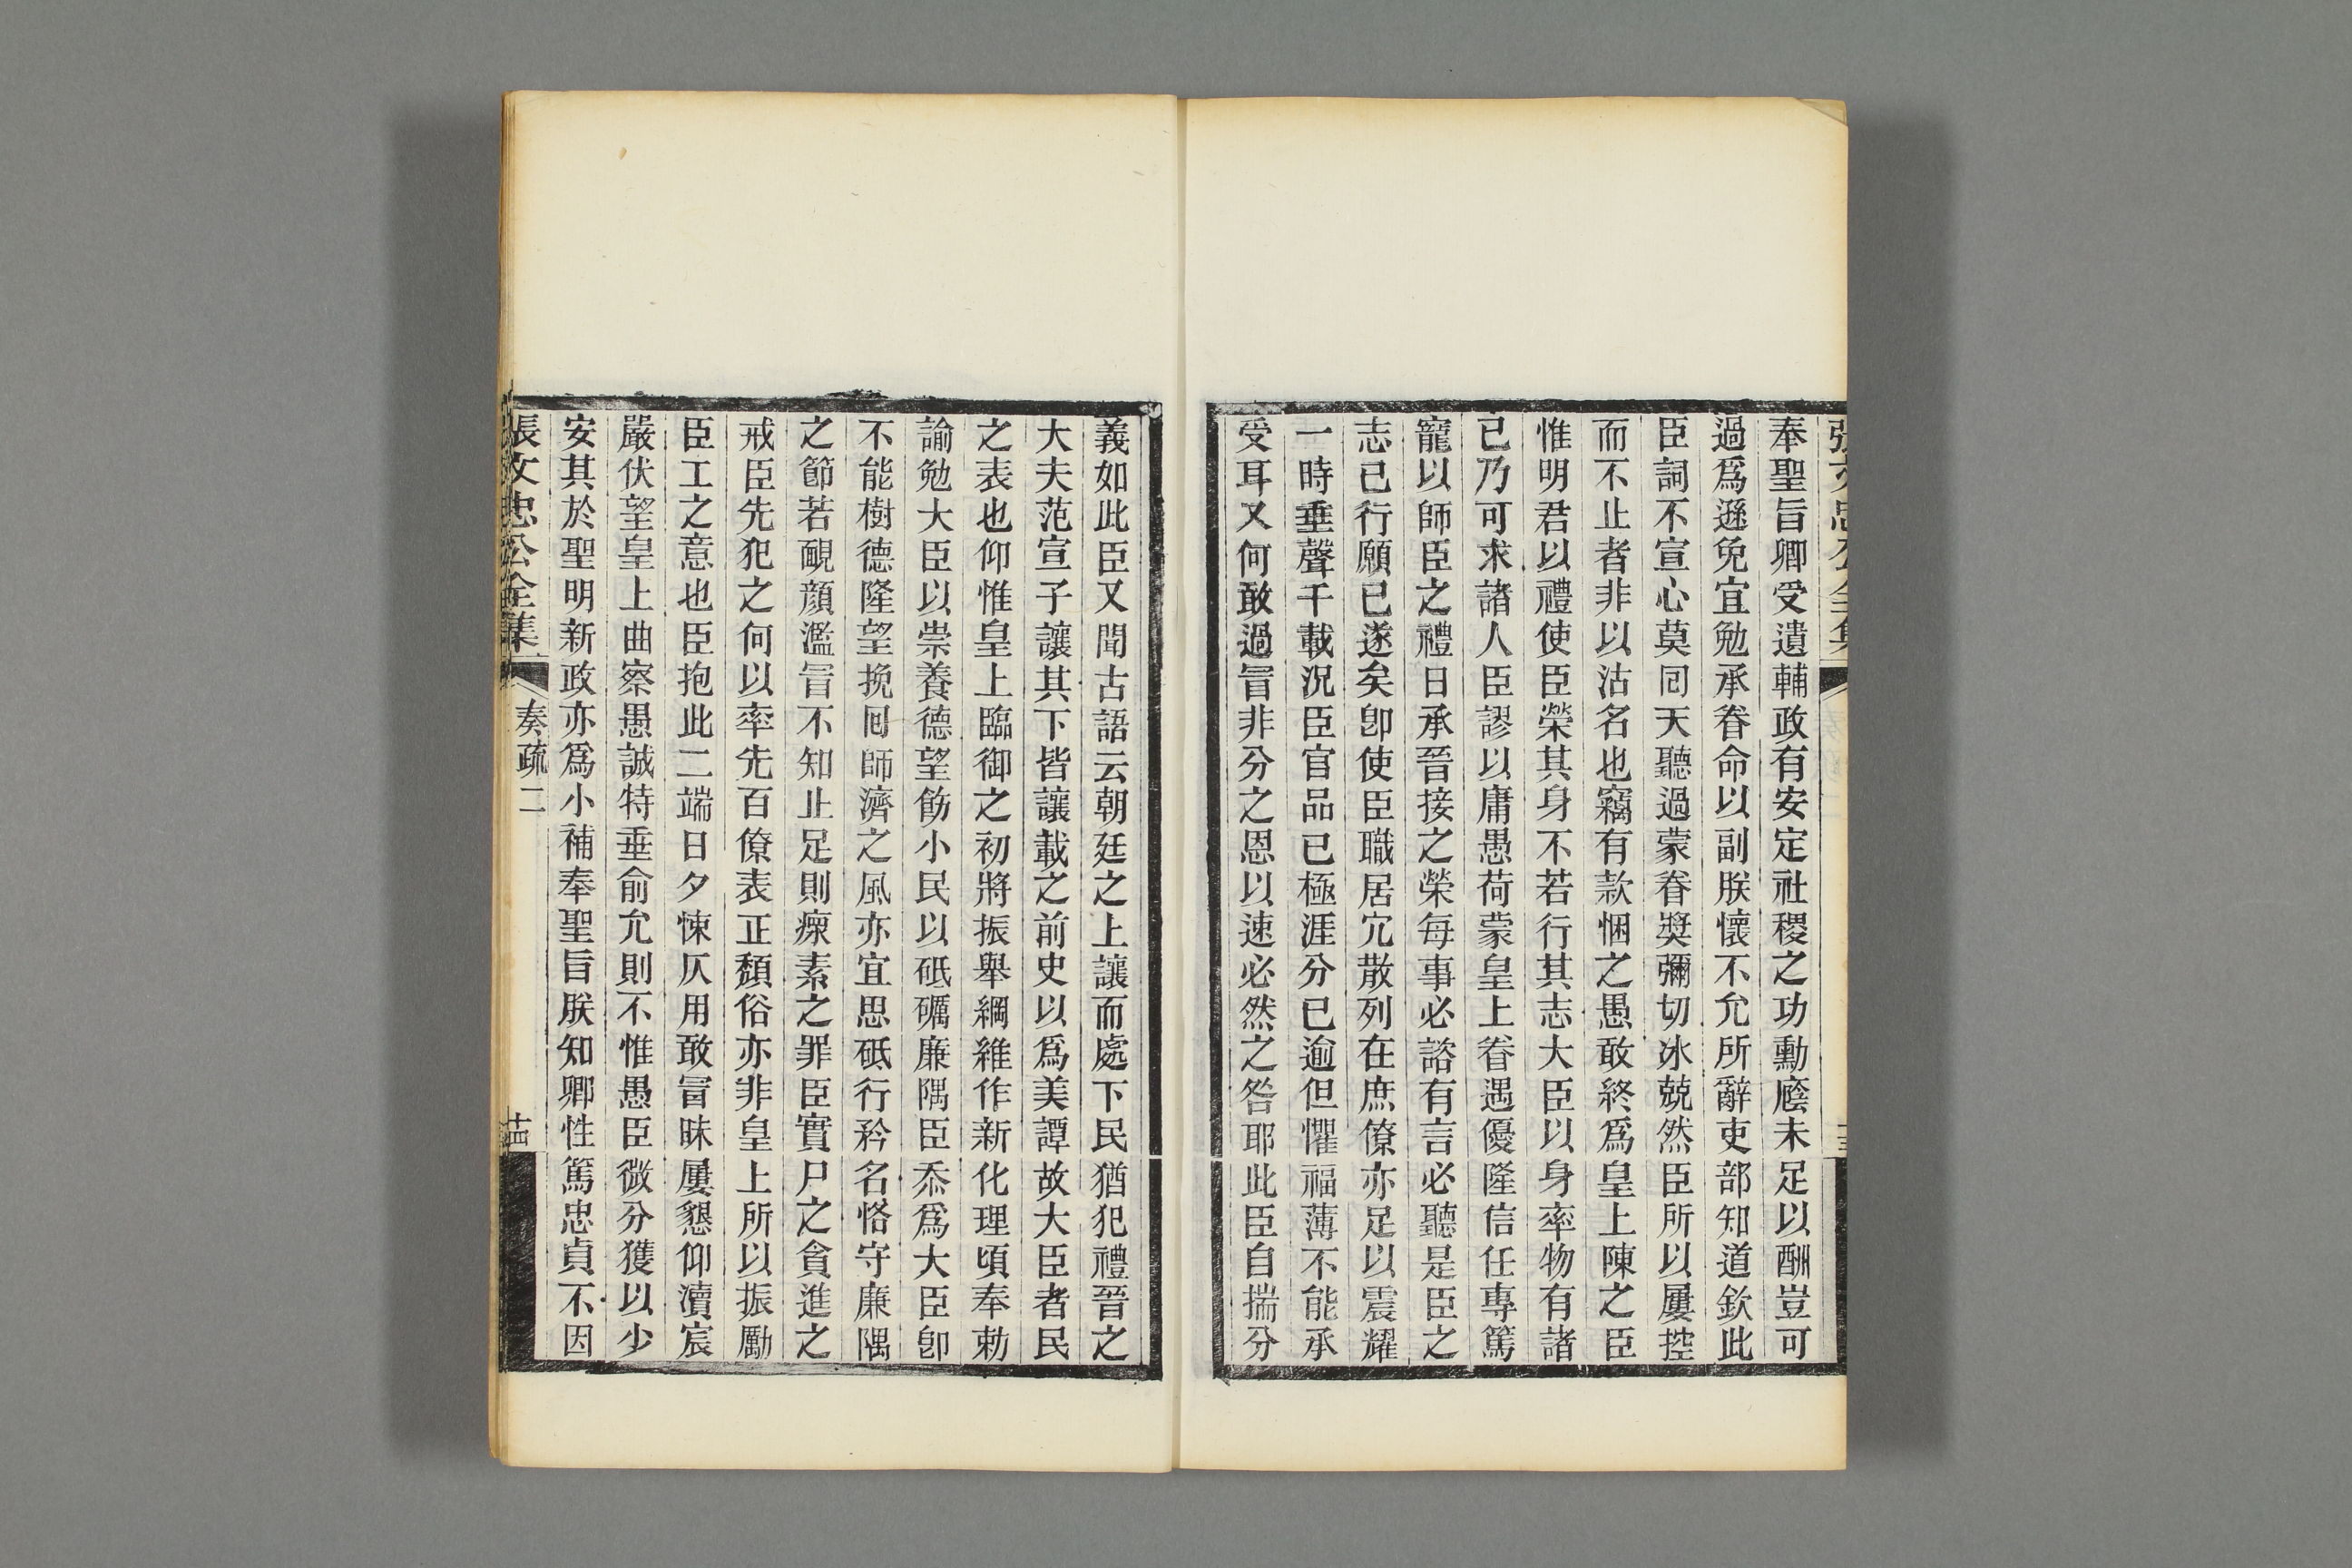 奉聖旨卿受遺輔政有安定社稷之功勳廕未足以酬豈可
過爲遜免宜勉承眷命以副朕懷不允所辭吏部知道欽此
臣詞不宣心莫囘天聽過蒙眷獎彌切冰兢然臣所以屢控
而不止者非以沽名也竊有款悃之愚敢終爲皇上陳之臣
惟明君以禮使臣榮其身不若行其志大臣以身率物有諸
己乃可求諸人臣謬以庸愚荷蒙皇上眷遇優隆信任專篤
寵以師臣之禮日承晉接之榮每事必諮有言必聽是臣之
志已行願已遂矣卽使臣職居冗散列在庶僚亦足以震耀
一時垂聲千載況臣官品已極涯分已逾但懼福薄不能承
受耳又何敢過冐非分之恩以速必然之咎耶此臣自揣分
義如此臣又聞古語云朝廷之上讓而處下民猶犯禮晉之
大夫范宣子讓其下皆讓載之前史以爲美譚故大臣者民
之表也仰惟皇上臨御之初將振舉綱維作新化理頃奉勅
諭勉大臣以崇養德望飭小民以砥礪廉隅臣忝爲大臣卽
不能樹德隆望挽囘師濟之風亦宜思砥行矜名恪守廉隅
之節若靦顔濫冐不知止足則瘝素之罪臣實尸之貪進之
戒臣先犯之何以率先百僚表正頽俗亦非皇上所以振勵
臣工之意也臣抱此二端日夕悚仄用敢冐昧屢懇仰瀆宸
嚴伏望皇上曲察愚誠特垂俞允則不惟愚臣微分獲以少
安其於聖明新政亦爲小補奉聖旨朕知卿性篤忠貞不因
張文忠公全集　奏疏二　十四